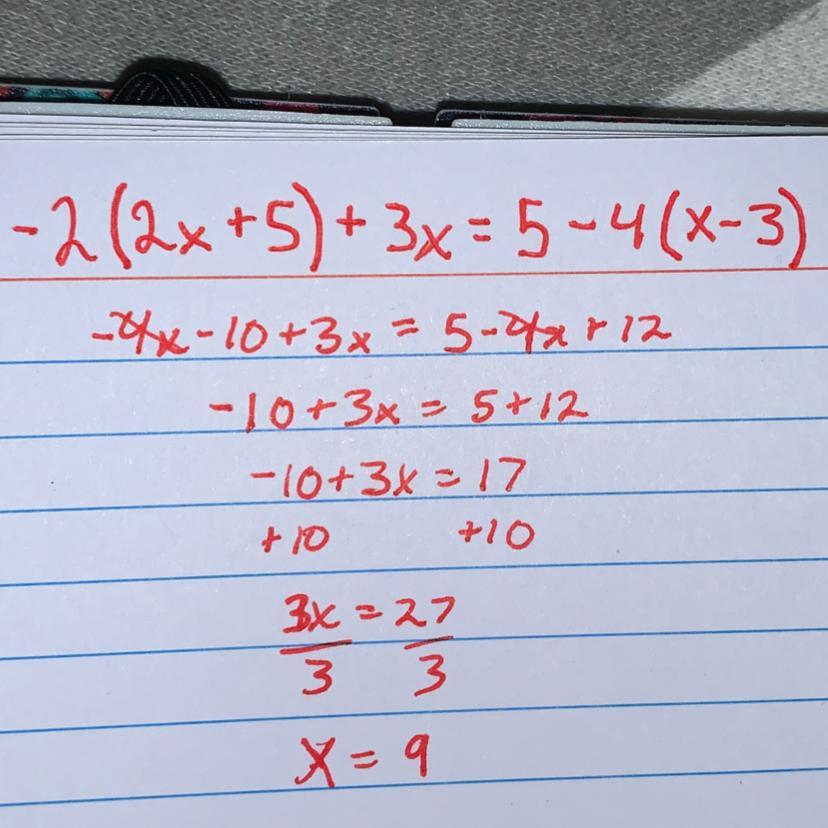 -2(2x+5)+3x=5-4(x-3)
-4x-10+3x=5-4x+12
-10+3x=5+12
-10+3x=17
+10 +10
3x=27
3 3
x=9